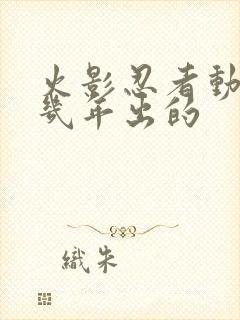 火影忍者動
幾年出的
織朱